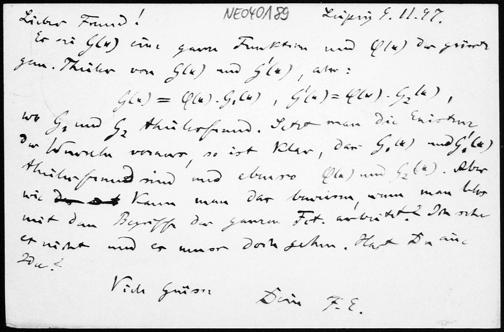 Lieber Freund! NE040189 Leipzig 9.11.47.
Es sei G(x) eine ganze Funktion und φ(x) der grösste
gem. Theiler von G(x) und G'(x), also:
G(x) = φ(x)·G₁(x), G'(x) = φ(x)·G₂(x),
wo G₁ und G₂ theilerfremd. Setzt man die Existenz
der Wurzeln voraus, so ist klar, dass G₁(x) und G₁'(x)
theilerfremd sind und ebenso φ(x) und G₂(x). Aber
wie kann man das beweisen, wenn man blos
mit dem Begriffe der ganzen Fct. arbeitet? Ich sehe
es nicht und es muss doch gehen. Hast Du eine
Idee?
Viele Grüsse
Dein F. E.